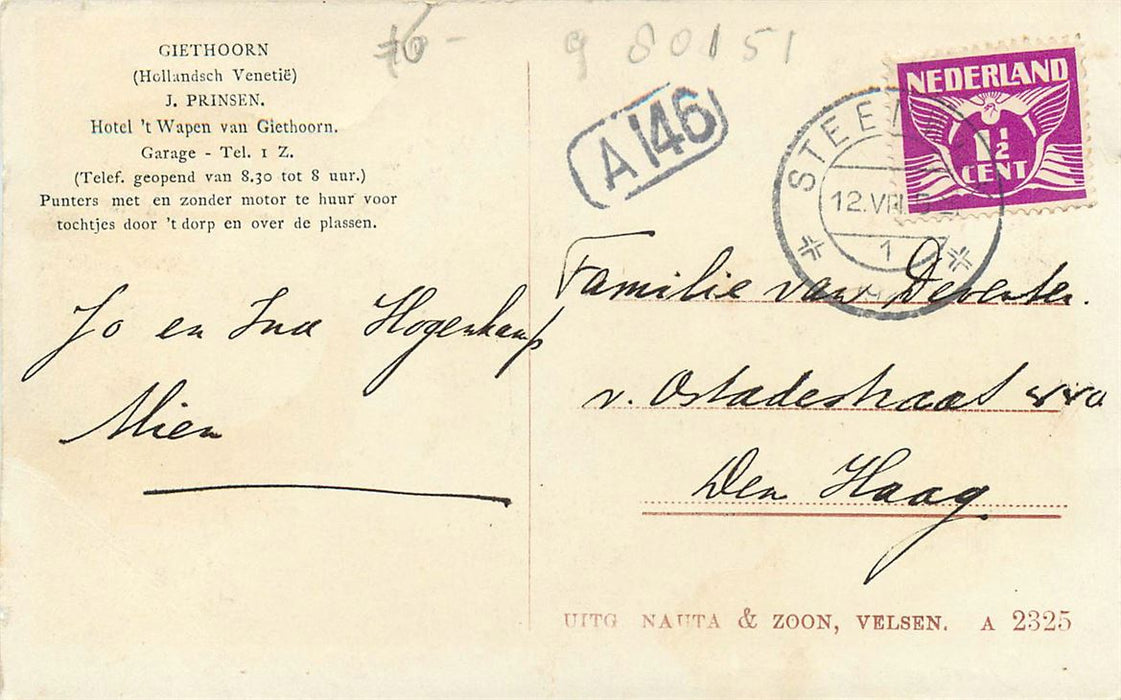 GIETHOORN
(Hollandsch Venetië)
J. PRINSEN.
Hotel 't Wapen van Giethoorn.
Garage - Tel. 1 Z.
(Telef. geopend van 8.30 tot 8 uur.)
Punters met en zonder motor te huur voor
tochtjes door 't dorp en over de plassen.
Jo en Ina Hogenkamp
Mien
9 80151
A 146
NEDERLAND
1½
CENT
12.VIII
1
Familie van Deventer.
v. Ostadestraat
Den Haag
UITG NAUTA & ZOON, VELSEN. A 2325